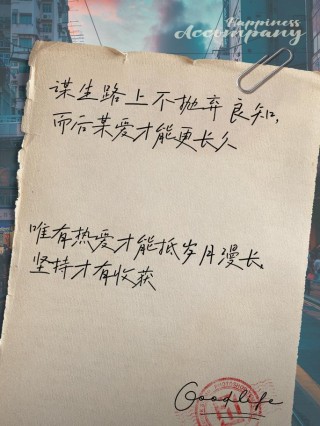 Happiness
Accompany
谋生路上不抛弃良知,
而后某爱才能更长久
唯有热爱才能抵岁月漫长,
坚持才有收获
Goodlife